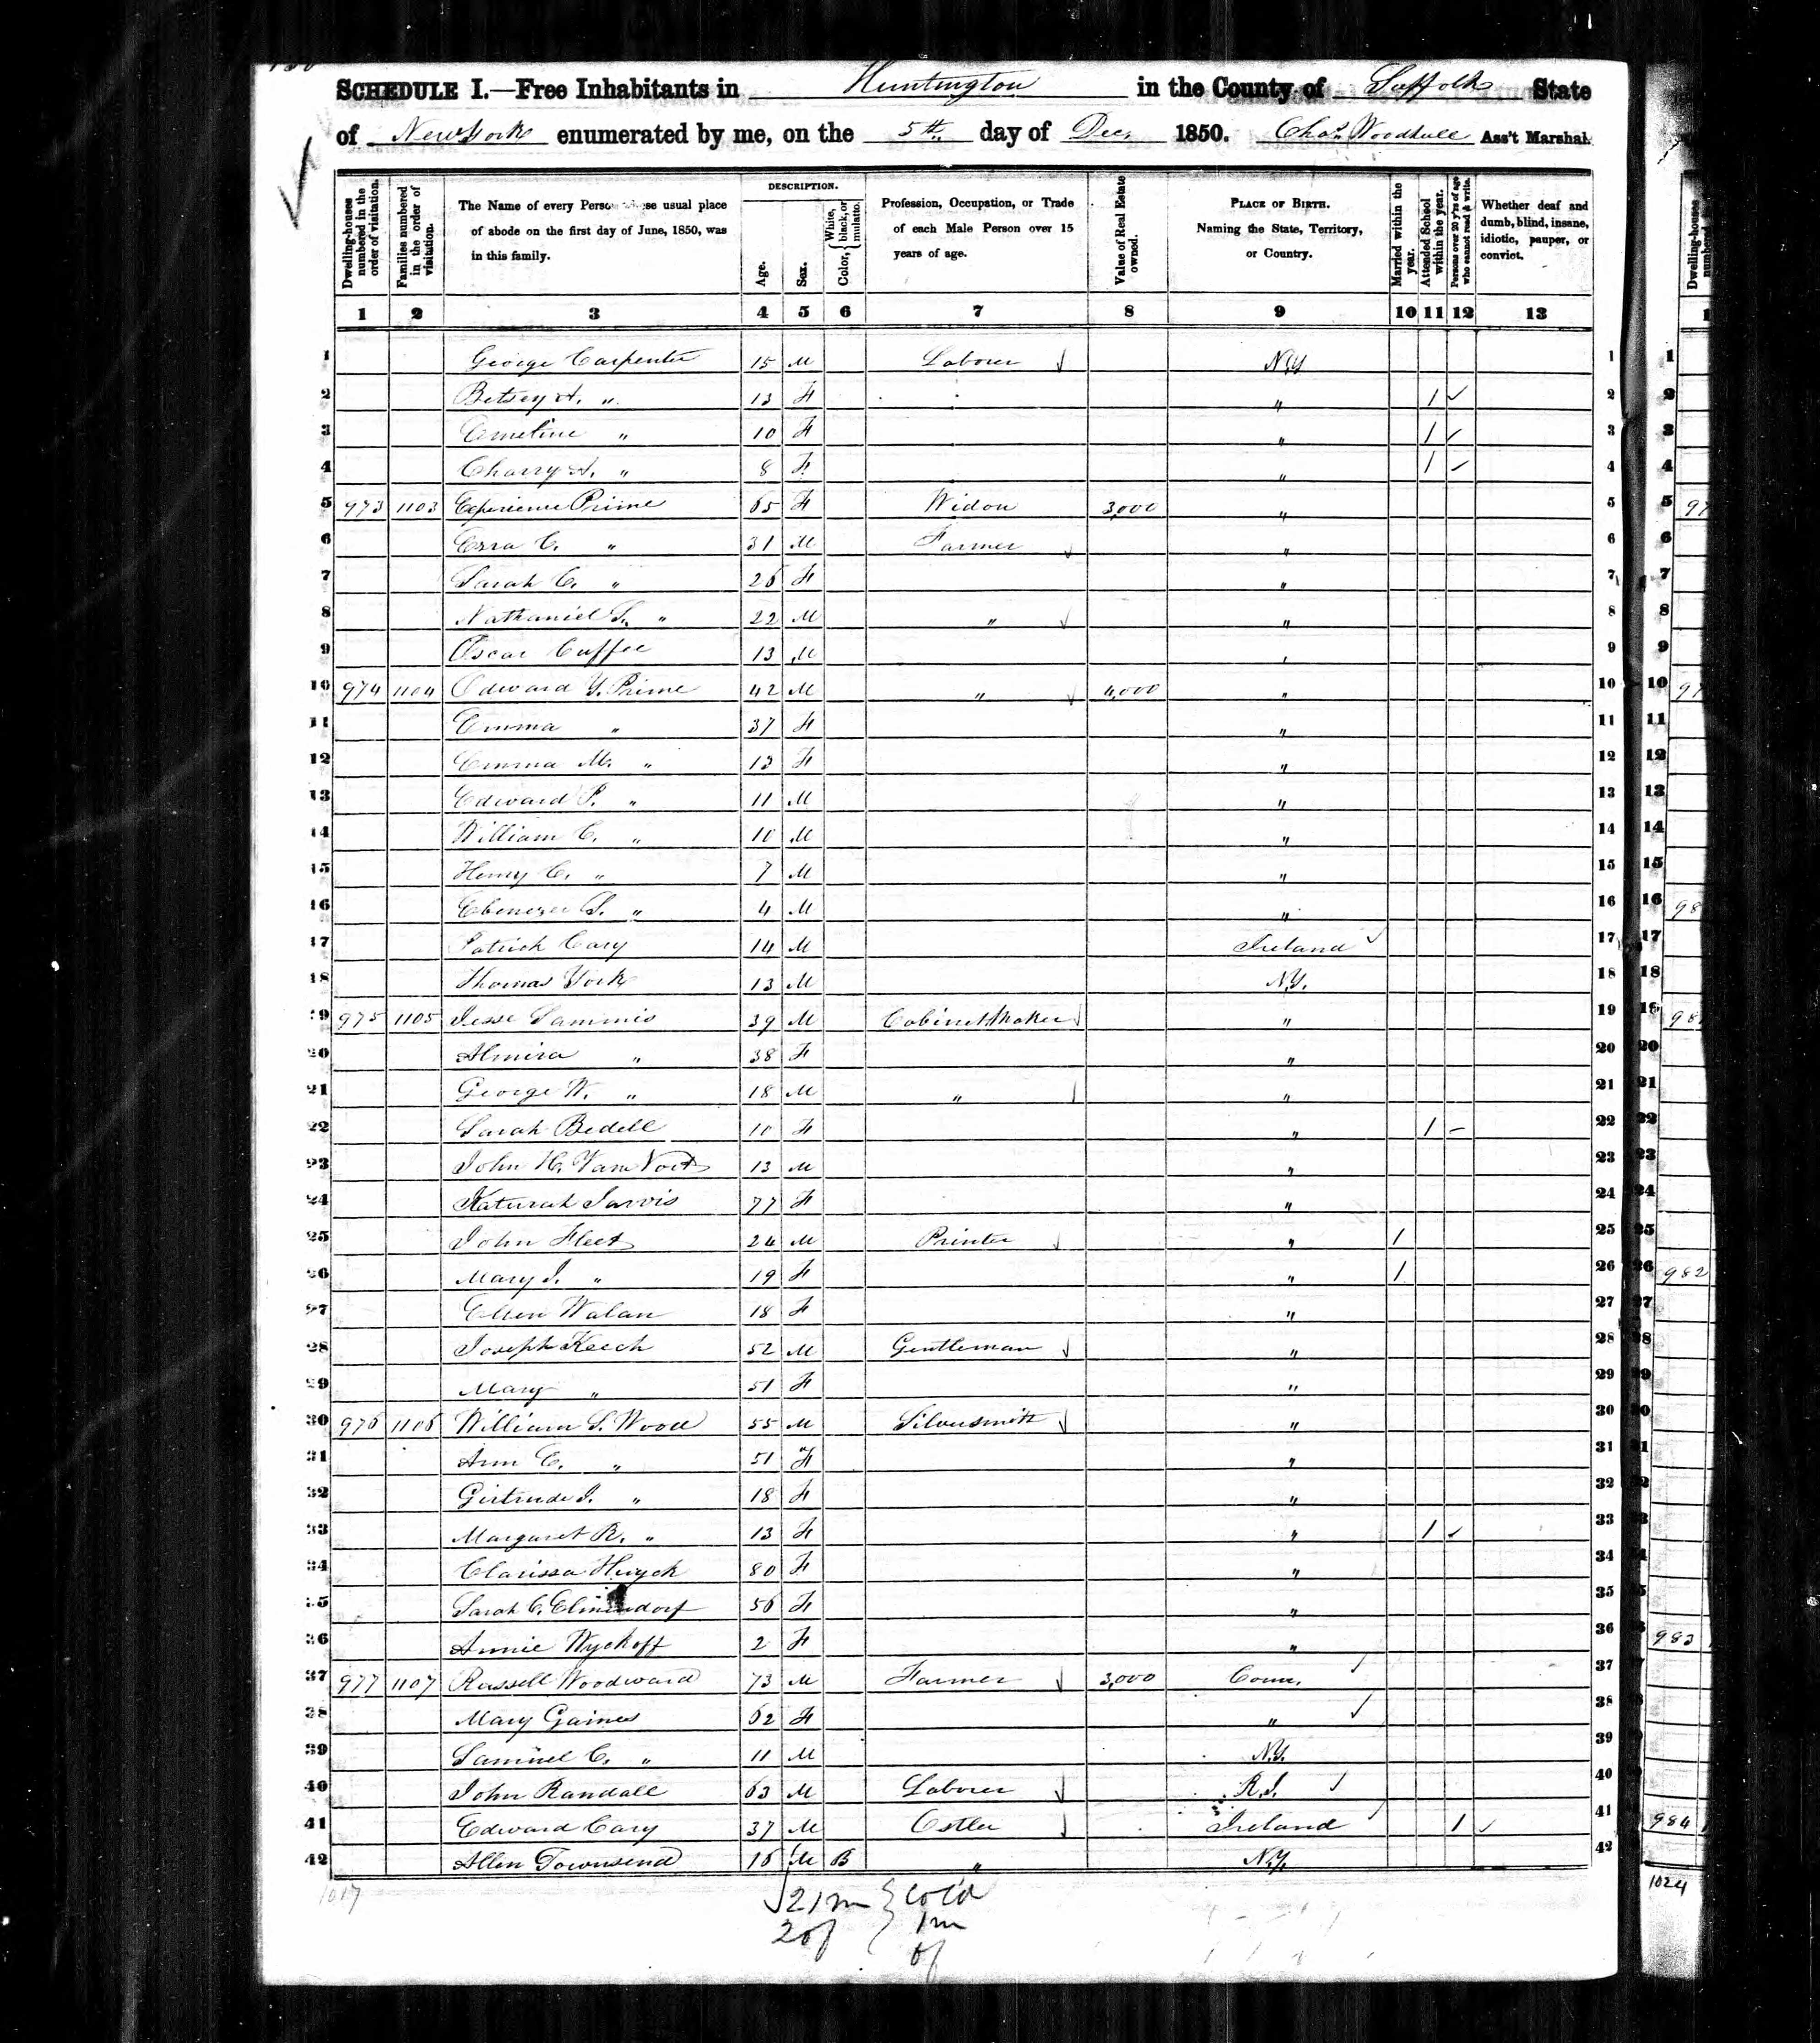 SCHEDULE I.—Free Inhabitants in Huntington in the County of Suffolk State
of New York enumerated by me, on the 5th day of Dec. 1850. Chas. Woodhull Ass't Marshal.
Dwelling-houses numbered in the order of visitation.
Families numbered in the order of visitation.
The Name of every Person whose usual place of abode on the first day of June, 1850, was in this family.
DESCRIPTION.
Age.
Sex.
Color, { White, black, or mulatto.
Profession, Occupation, or Trade of each Male Person over 15 years of age.
Value of Real Estate owned.
PLACE OF BIRTH. Naming the State, Territory, or Country.
Married within the year.
Attended School within the year.
Persons over 20 y'rs of age who cannot read & write.
Whether deaf and dumb, blind, insane, idiotic, pauper, or convict.
1 2 3 4 5 6 7 8 9 10 11 12 13
1 George Carpenter 15 M Laborer N.Y 1
2 Betsey A. " 13 F " 1 2
3 Emeline " 10 F " 1 3
4 Charry A. " 8 F " 1 4
5 973 1103 Experience Prime 65 F Widow 3,000 " 5
6 Ezra C. " 31 M Farmer " 6
7 Sarah C. " 26 F " 7
8 Nathaniel S. " 22 M " " 8
9 Oscar Cuffee 13 M " 9
10 974 1104 Edward Y. Prime 42 M " 4,000 " 10
11 Emma " 37 F " 11
12 Emma M. " 13 F " 12
13 Edward P. " 11 M " 13
14 William C. " 10 M " 14
15 Henry C. " 7 M " 15
16 Ebenezer S. " 4 M " 16
17 Patrick Cary 14 M Ireland 17
18 Thomas York 13 M N.Y. 18
19 975 1105 Jesse Sammis 39 M Cabinet Maker " 19
20 Almira " 38 F " 20
21 George W. " 18 M " " 21
22 Sarah Bedell 10 F " 1 22
23 John H. Van 13 M " 23
24 Katurah Jarvis 77 F " 24
25 John Fleet 24 M Printer " 1 25
26 Mary J. " 19 F " 1 26
27 Ellen Walan 18 F " 27
28 Joseph Keech 52 M Gentleman " 28
29 Mary " 51 F " 29
30 976 1106 William S. Wood 55 M Silversmith " 30
31 Ann E. " 51 F " 31
32 Gertrude J. " 18 F " 32
33 Margaret R. " 13 F " 1 33
34 Clarissa Huyck 80 F " 34
35 Sarah C. Elmendorf 56 F " 35
36 Annie Wyckoff 2 F " 36
37 977 1107 Russell Woodward 73 M Farmer 3,000 Conn. 37
38 Mary Gaines 62 F " 38
39 Samuel C. " 11 M N.Y. 39
40 John Randall 63 M Laborer R.I. 40
41 Edward Cary 37 M Ostler Ireland 1 41
42 Allen Townsend 16 M B " N.Y. 42
1017
21 m } Col'd
20 f } 1 m
0 f
Dwelling-houses
98
982
983
984
1024